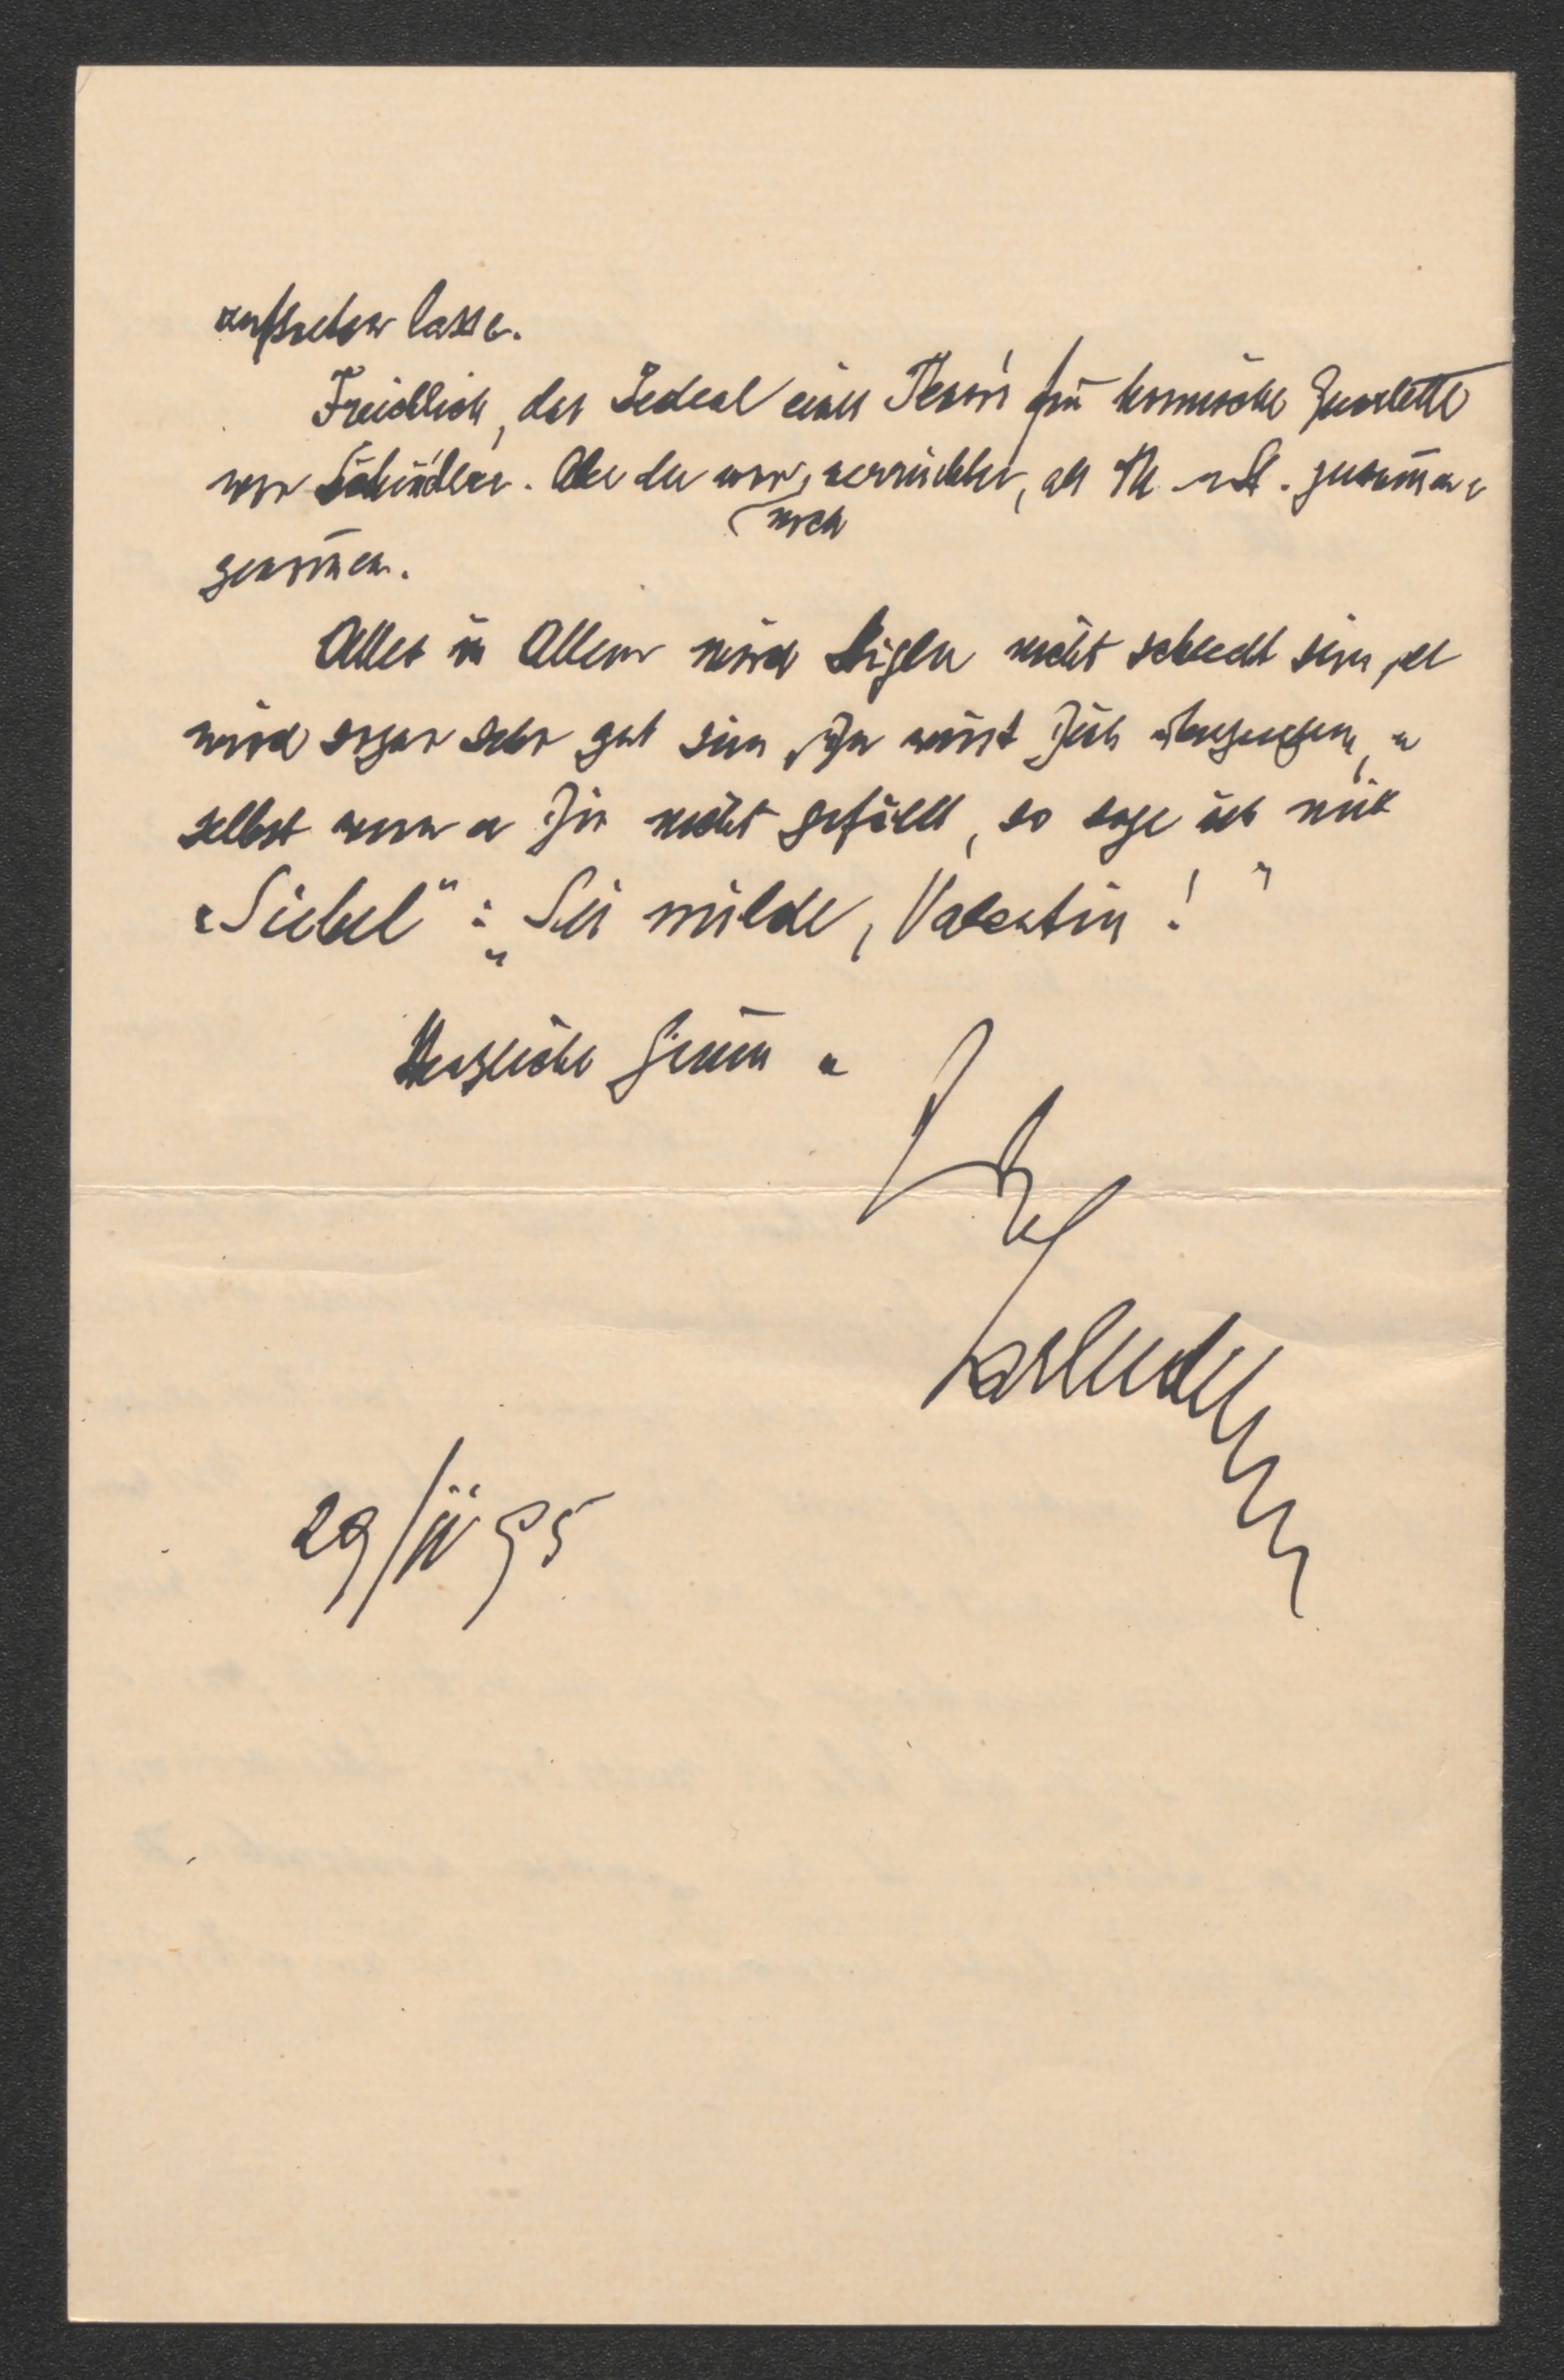 auftreten lasse.
Freilich, das Ideal eines Tenors für komische Quartette
war Schüdler. Aber der war verrückter, als Th. u St. zusammen
noch
genom̄en.
Alles in Allem wird Stigler nicht schlecht sein, er
wird sogar sehr gut sein, Du wirst Dich überzeugen, u
selbst wenn er Dir nicht gefällt, so sage ich mit
„Siebel“: „Sei milde, Valentin!“
Herzliche Grüße u
29/II 95